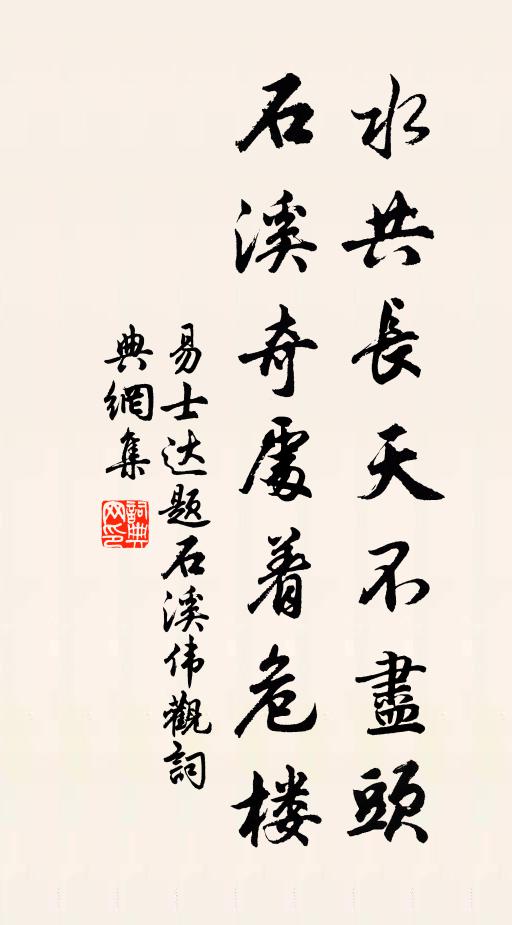 水共長天不盡頭
石溪奇處着危楼
易士达题石溪伟觀詞
典網集
詞典网印